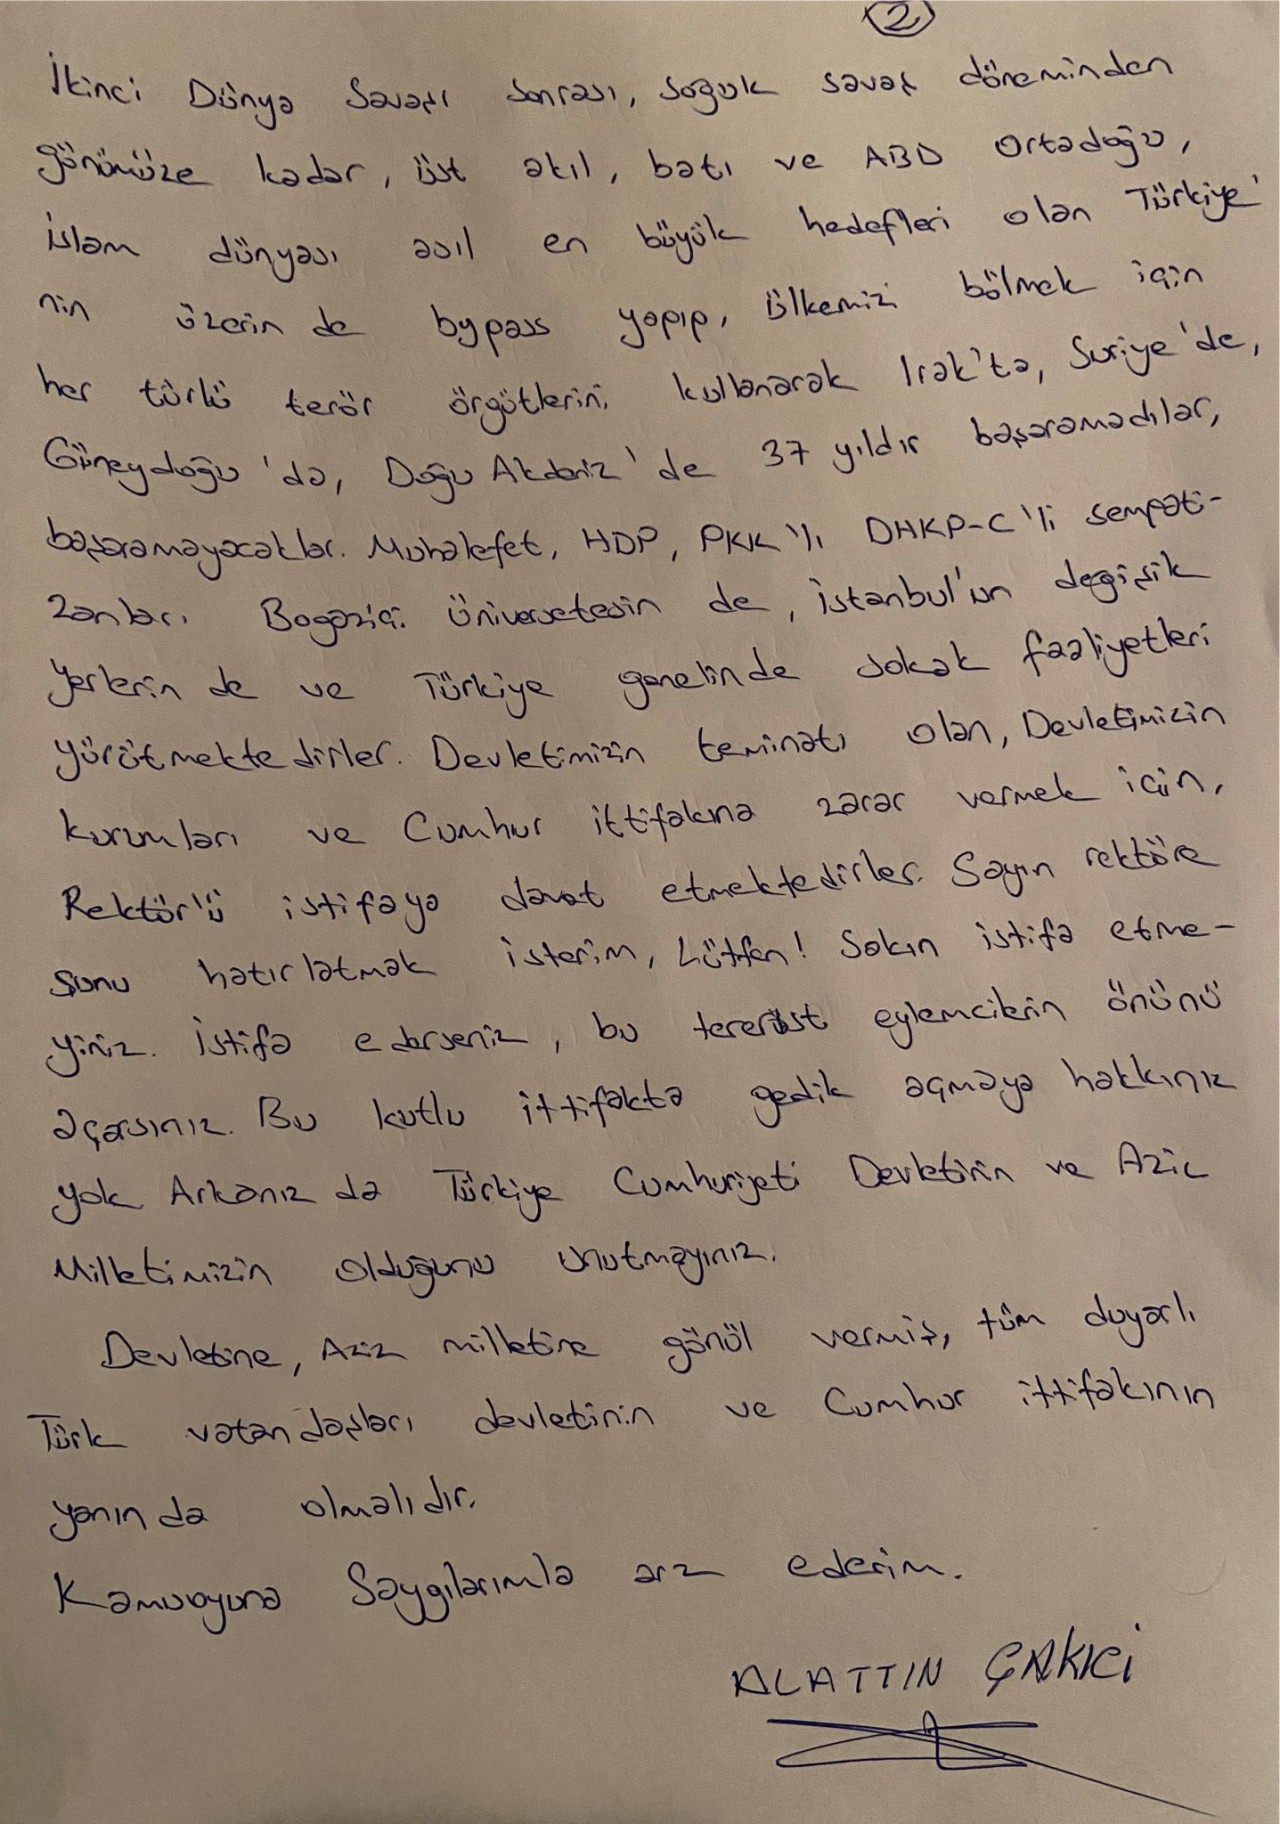 2
İkinci Dünya Savaşı sonrası, soğuk savaş döneminden
günümüze kadar, üst akıl, batı ve ABD Ortadoğu,
İslam dünyası asıl en büyük hedefleri olan Türkiye'
nin üzerin de bypass yapıp, ülkemizi bölmek için
her türlü terör örgütlerini kullanarak Irak'ta, Suriye'de,
Güneydoğu'da, Doğu Akdeniz'de 37 yıldır başaramadılar,
başaramayacaklar. Muhalefet, HDP, PKK'lı DHKP-C'li sempati-
zanları Bogaziçi Üniversetesin de, İstanbul'un degişik
yerlerin de ve Türkiye genelinde sokak faaliyetleri
yürütmekte dirler. Devletimizin teminatı olan, Devletimizin
kurumları ve Cumhur ittifakına zarar vermek için,
Rektör'ü istifaya davet etmektedirler. Sayın rektöre
şunu hatırlatmak isterim, Lütfen! Sakın istifa etme-
yiniz. İstifa ederseniz, bu tererist eylemcilerin önünü
açarsınız. Bu kutlu ittifakta gedik açmaya hakkınız
yok. Arkanız da Türkiye Cumhuriyeti Devletinin ve Aziz
Milletimizin olduğunu unutmayınız.
Devletine, Aziz milletine gönül vermiş, tüm duyarlı
Türk vatandaşları devletinin ve Cumhur ittifakının
yanın da olmalıdır.
Kamuoyuna Saygılarımla arz ederim.
ALATTIN ÇAKICI